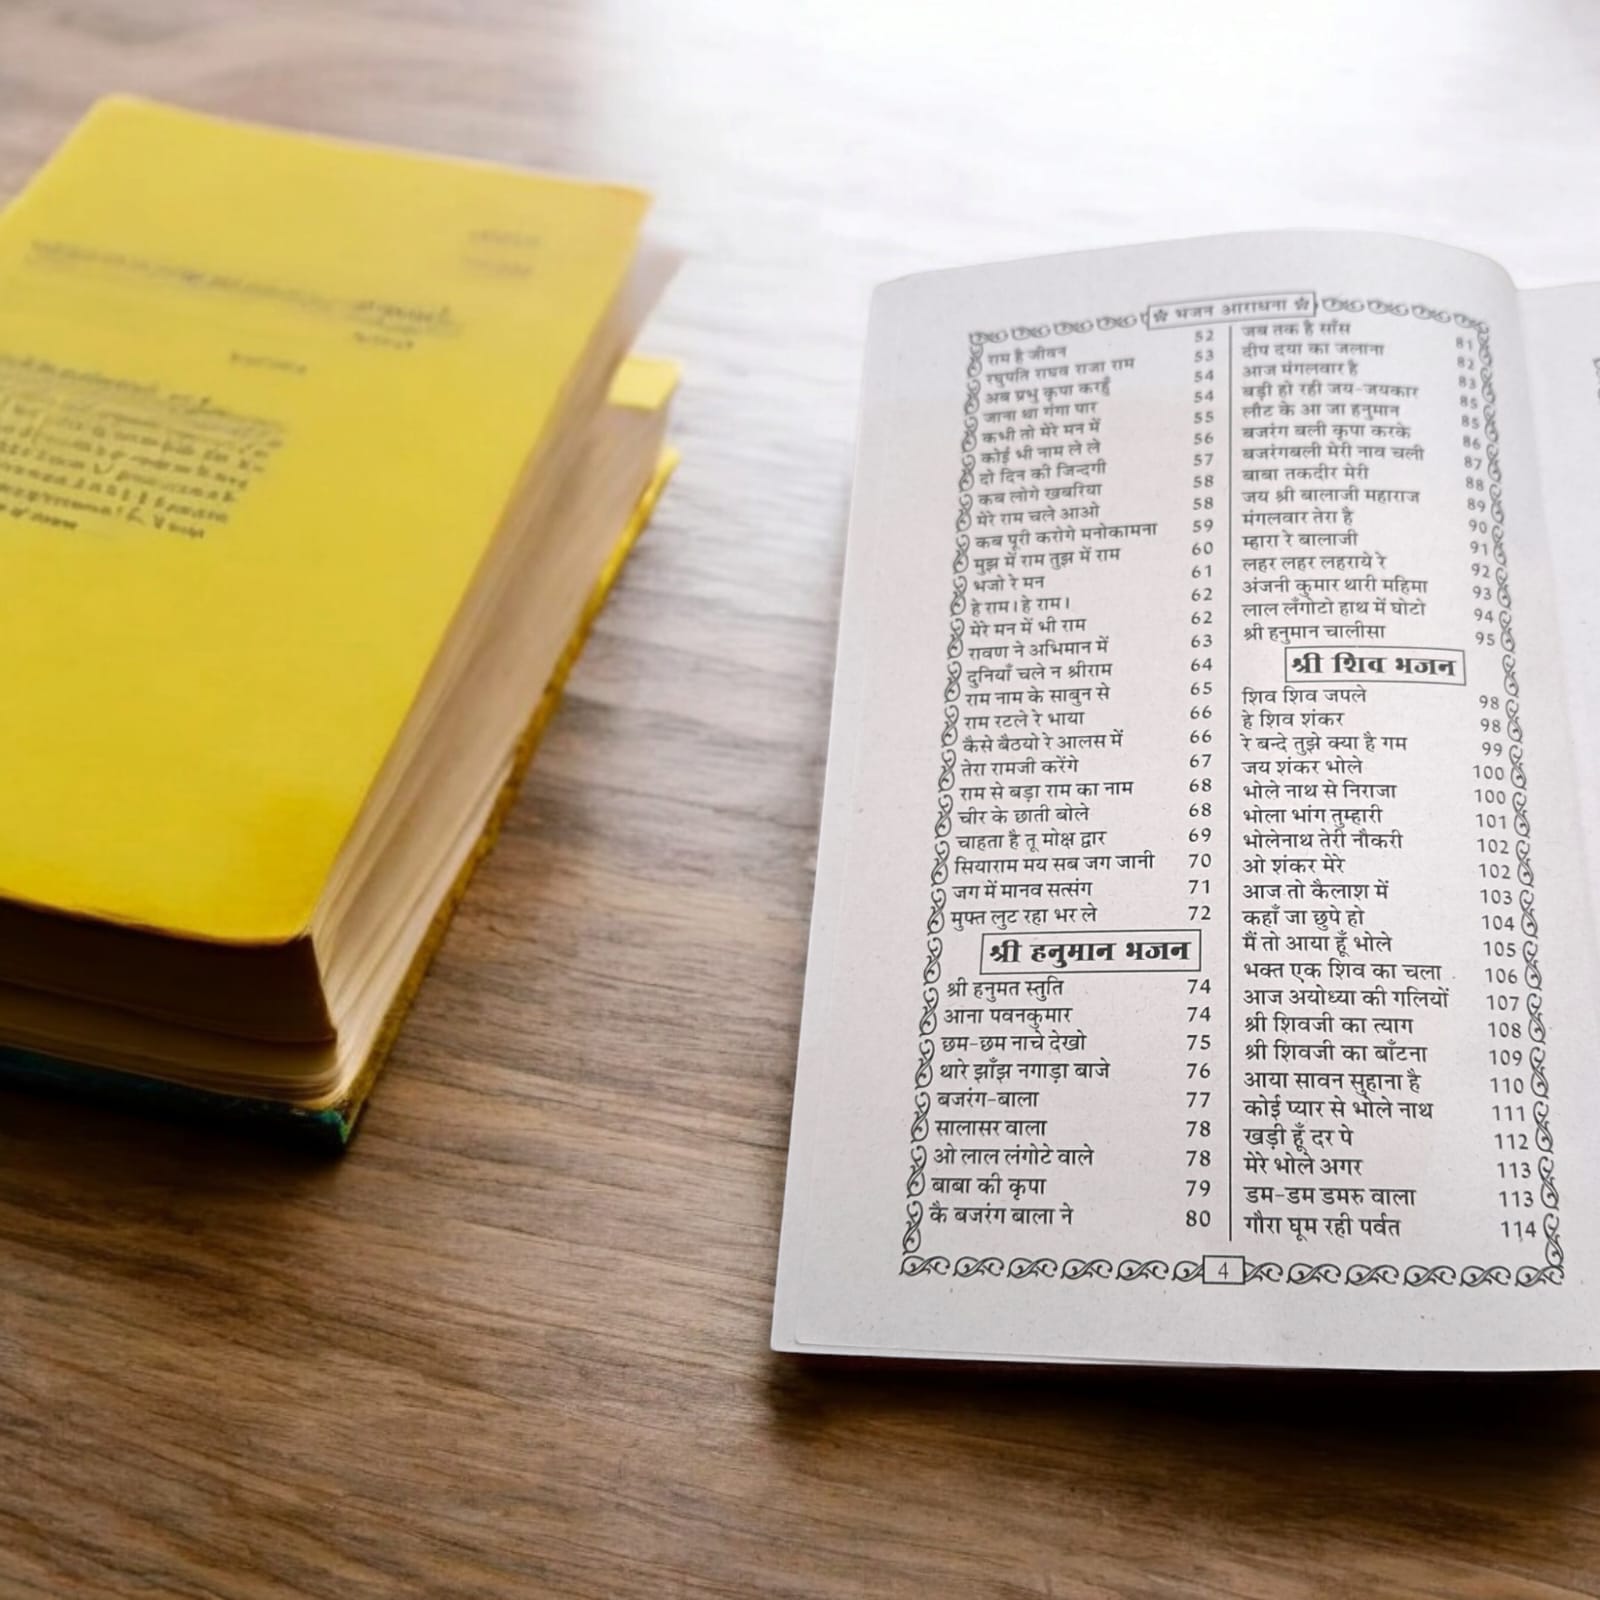 भजन आराधना
राम है जीवन 52
रघुपति राघव राजा राम 53
अब प्रभु कृपा करहुँ 54
जाना था गंगा पार 54
कभी तो मेरे मन में 55
कोई भी नाम ले ले 56
दो दिन की जिन्दगी 57
कब लोगे खबरिया 58
मेरे राम चले आओ 58
कब पूरी करोगे मनोकामना 59
मुझ में राम तुझ में राम 60
भजो रे मन 61
हे राम। हे राम। 62
मेरे मन में भी राम 62
रावण ने अभिमान में 63
दुनियाँ चले न श्रीराम 64
राम नाम के साबुन से 65
राम रटले रे भाया 66
कैसे बैठयो रे आलस में 66
तेरा रामजी करेंगे 67
राम से बड़ा राम का नाम 68
चीर के छाती बोले 68
चाहता है तू मोक्ष द्वार 69
सियाराम मय सब जग जानी 70
जग में मानव सत्संग 71
मुफ्त लुट रहा भर ले 72
श्री हनुमान भजन
श्री हनुमत स्तुति 74
आना पवनकुमार 74
छम-छम नाचे देखो 75
थारे झाँझ नगाड़ा बाजे 76
बजरंग-बाला 77
सालासर वाला 78
ओ लाल लंगोटे वाले 78
बाबा की कृपा 79
कै बजरंग बाला ने 80
जब तक है साँस 81
दीप दया का जलाना 82
आज मंगलवार है 83
बड़ी हो रही जय-जयकार 85
लौट के आ जा हनुमान 85
बजरंग बली कृपा करके 86
बजरंगबली मेरी नाव चली 87
बाबा तकदीर मेरी 88
जय श्री बालाजी महाराज 89
मंगलवार तेरा है 90
म्हारा रे बालाजी 91
लहर लहर लहराये रे 92
अंजनी कुमार थारी महिमा 93
लाल लँगोटो हाथ में घोटो 94
श्री हनुमान चालीसा 95
श्री शिव भजन
शिव शिव जपले 98
हे शिव शंकर 98
रे बन्दे तुझे क्या है गम 99
जय शंकर भोले 100
भोले नाथ से निराजा 100
भोला भांग तुम्हारी 101
भोलेनाथ तेरी नौकरी 102
ओ शंकर मेरे 102
आज तो कैलाश में 103
कहाँ जा छुपे हो 104
मैं तो आया हूँ भोले 105
भक्त एक शिव का चला 106
आज अयोध्या की गलियों 107
श्री शिवजी का त्याग 108
श्री शिवजी का बाँटना 109
आया सावन सुहाना है 110
कोई प्यार से भोले नाथ 111
खड़ी हूँ दर पे 112
मेरे भोले अगर 113
डम-डम डमरु वाला 113
गौरा घूम रही पर्वत 114
4